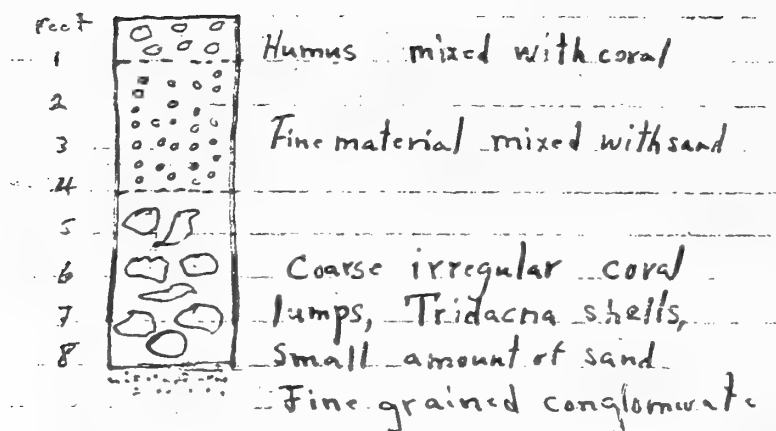 feet
Humus mixed with coral
1
2
Fine material mixed with sand
3
4
5
6
Coarse irregular coral
7
lumps, Tridacna shells,
8
Small amount of sand
Fine grained conglomerate